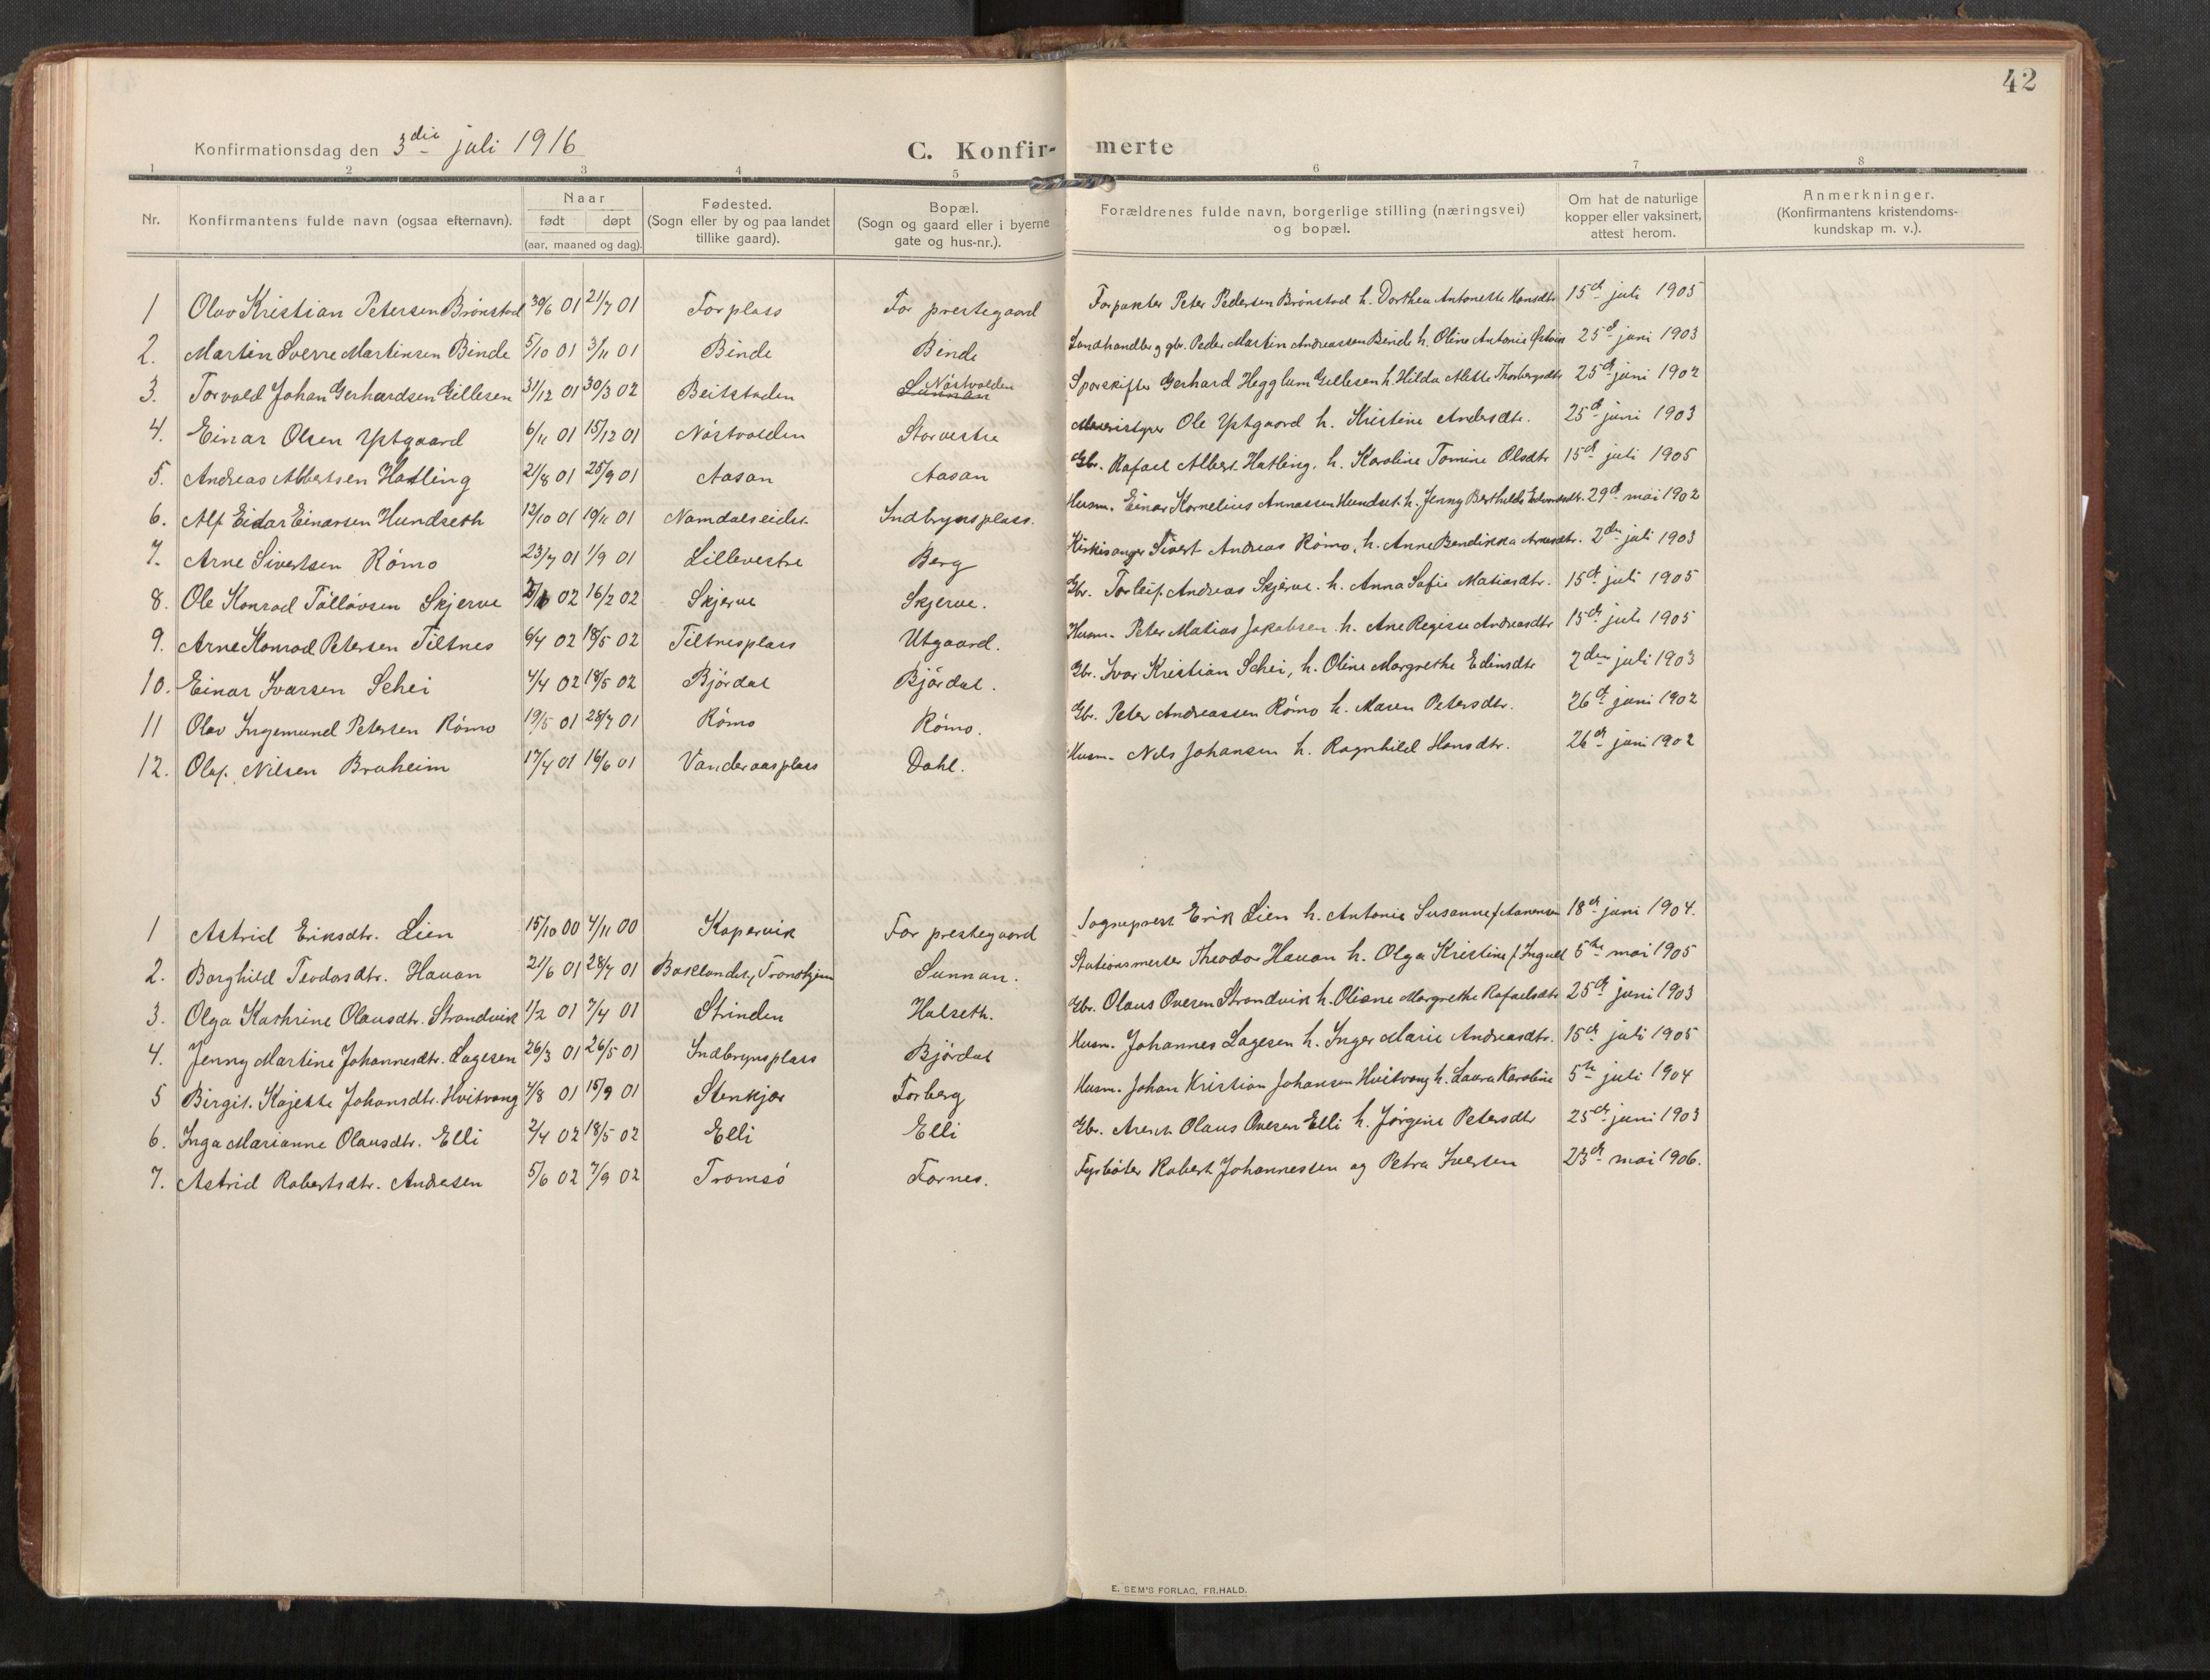 42
Konfirmationsdag den 3die juli 1916
C. Konfir- merte
1 2 3 4 5 6 7 8
Nr. Konfirmantens fulde navn (ogsaa efternavn). Naar født døpt (aar, maaned og dag). Fødested. (Sogn eller by og paa landet tillike gaard). Bopæl. (Sogn og gaard eller i byerne gate og hus-nr.). Forældrenes fulde navn, borgerlige stilling (næringsvei) og bopæl. Om hat de naturlige kopper eller vaksinert, attest herom. Anmerkninger. (Konfirmantens kristendoms- kundskap m. v.).
1 Olav Kristian Petersen Brønstad 30/6 01 21/7 01 For plass For prestegaard Forpakter Peter Pedersen Brønstad h. Dorthea Antonette Hansdtr 15de juli 1905
2. Martin Sverre Martinsen Binde 5/10 01 3/11 01 Binde Binde Landhandler og gbr. Peder Martin Andreassen Binde h. Oline Antonie 25de juni 1903
3. Torvald Johan Gerhardsen Gillesen 31/12 01 30/3 02 Beitstaden Sunnan Nøstvolden Sporskifter Gerhard Hegglum Gillesen h. Hilda Alette Thorbergsdtr 25de juni 1902
4. Einar Olsen Ystgaard 6/11 01 15/12 01 Nøstvolden Storvestre Ole Ystgaard h. Kristine Andersdtr. 25de juni 1903
5. Andreas Albertsen Hatling 21/8 01 25/9 01 Aasan Aasan Gbr. Rafael Albert Hatling, h. Karoline Tomine Olsdtr 15de juli 1905
6. Alf Eidar Einarsen Hundseth 12/10 01 19/11 01 Namdalseidet Indbrynsplass. Husm. Einar Kornelius Annassen Hundset. h. Jenny Berthilde 29de mai 1902
7. Arne Sivertsen Rømo 23/7 01 1/9 01 Lillevestre Berg Kirkesanger Sivert Andreas Rømo, h. Anne Bendikka Arnesdtr. 2den juli 1903
8. Ole Konrad Tølløvsen Skjerve 02 16/2 02 Skjerve Skjerve. Gbr. Torleif Andreas Skjerve. h. Anna Sofie Matiasdtr. 15de juli 1905
9. Arne Konrad Petersen Tiltnes 6/4 02 18/5 02 Tiltnesplass Utgaard. Husm. Peter Matias Jakobsen h. Ane Regine Andreasdtr 15de juli 1905
10. Einar Ivarsen Schei 4/4 02 18/5 02 Bjørdal Bjørdal. Gbr. Ivar Kristian Schei, h. Oline Margrethe Edinsdtr 2den juli 1903
11 Olav Ingemund Petersen Rømo 19/5 01 28/7 01 Rømo Rømo. Gbr. Peter Andreassen Rømo h. Maren Petersdtr. 26de juni 1902
12. Olaf Nilsen Braheim 17/4 01 16/6 01 Vanderaasplass Dahl. Husm. Nils Johansen h. Ragnhild Hansdtr. 26de juni 1902
1 Astrid Eriksdtr. Lien 15/10 00 4/11 00 Kopervik For prestegaard Sogneprest Erik Lien h. Antonie Susanne f. 18de juni 1904.
2. Borghild Teodorsdtr. Hauan 21/6 01 28/7 01 Baklandet, Trondhjem Sunnan. Stationsmester Theodor Hauan h. Olga Kristine f. 5te mai 1905
3. Olga Kathrine Olausdtr. Strandvik 1/2 01 7/4 01 Strinden Halseth. Gbr. Olaus Ovesen Strandvik h. Olianne Margrethe Rafaelsdtr 25de juni 1903
4. Jenny Martine Johannesdtr. Lagesen 26/3 01 26/5 01 Indbrynsplass Bjørdal Husm. Johannes Lagesen h. Inger Marie Andreasdtr. 15de juli 1905
5 Birgit Kajette Johansdtr. Hvitvang 4/8 01 15/9 01 Stenkjær Forberg Husm. Johan Kristian Johansen Hvitvang h. Laura Karoline 5te juli 1904
6. Inga Marianne Olausdtr. Elli 2/4 02 18/5 02 Elli Elli Gbr. Arent Olaus Ovesen Elli h. Jørgine Petersdtr 25de juni 1903
7. Astrid Robertsdtr. Andresen 5/6 02 7/9 02 Tromsø Fornes. Fyrbøter Robert Johannessen og Petra Iversen 23de mai 1906.
E. SEM'S FORLAG, FR.HALD.